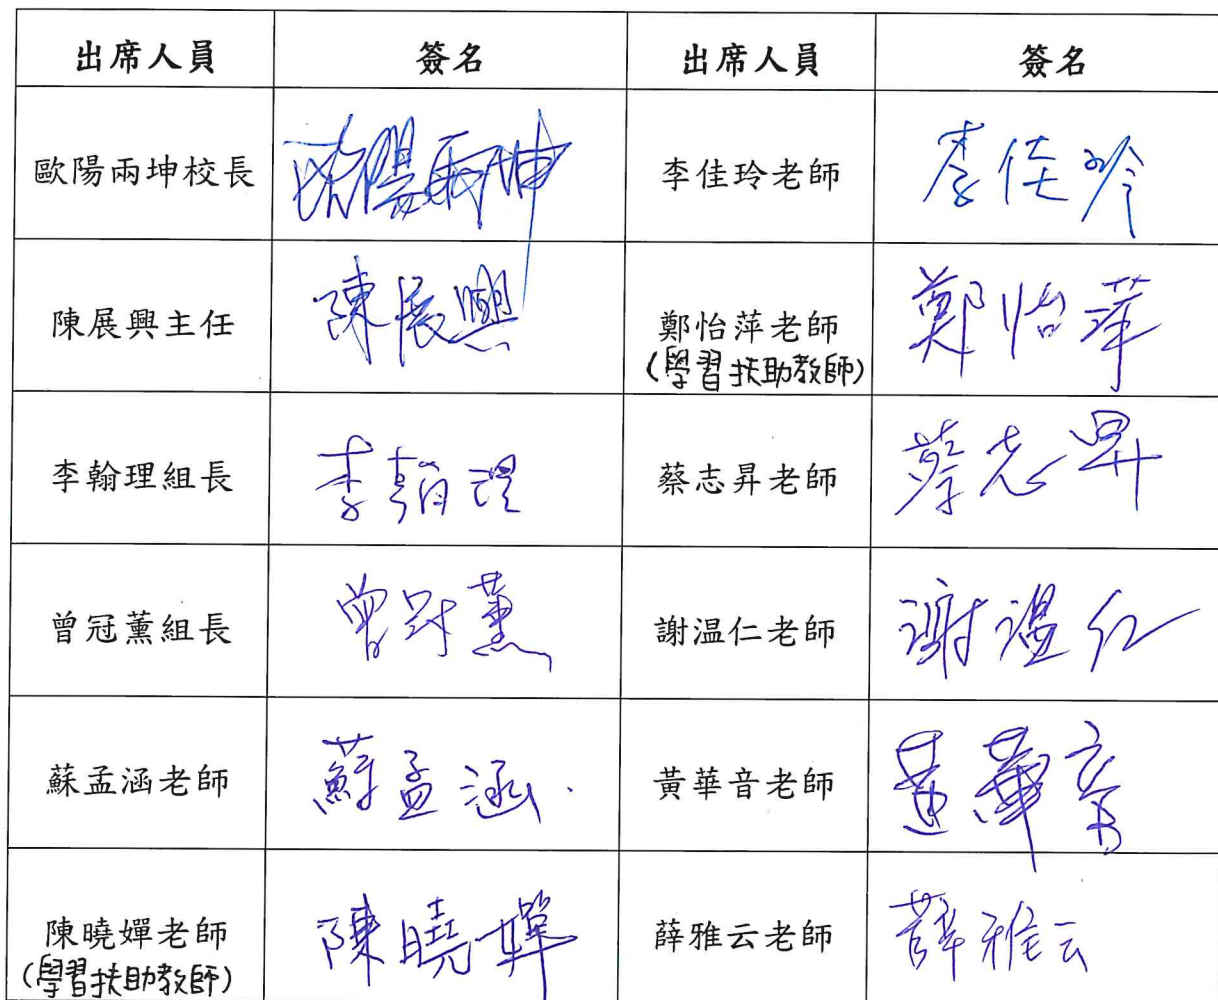 出席人員 簽名 出席人員 簽名
歐陽兩坤校長 歐陽兩坤 李佳玲老師 李佳玲
陳展興主任 陳展興 鄭怡萍老師 鄭怡萍
(學習扶助教師)
李翰理組長 李翰理 蔡志昇老師 蔡志昇
曾冠薰組長 曾冠薰 謝温仁老師 謝温仁
蘇孟涵老師 蘇孟涵 黃華音老師 黃華音
陳曉嬋老師 陳曉嬋 薛雅云老師 薛雅云
(學習扶助教師)